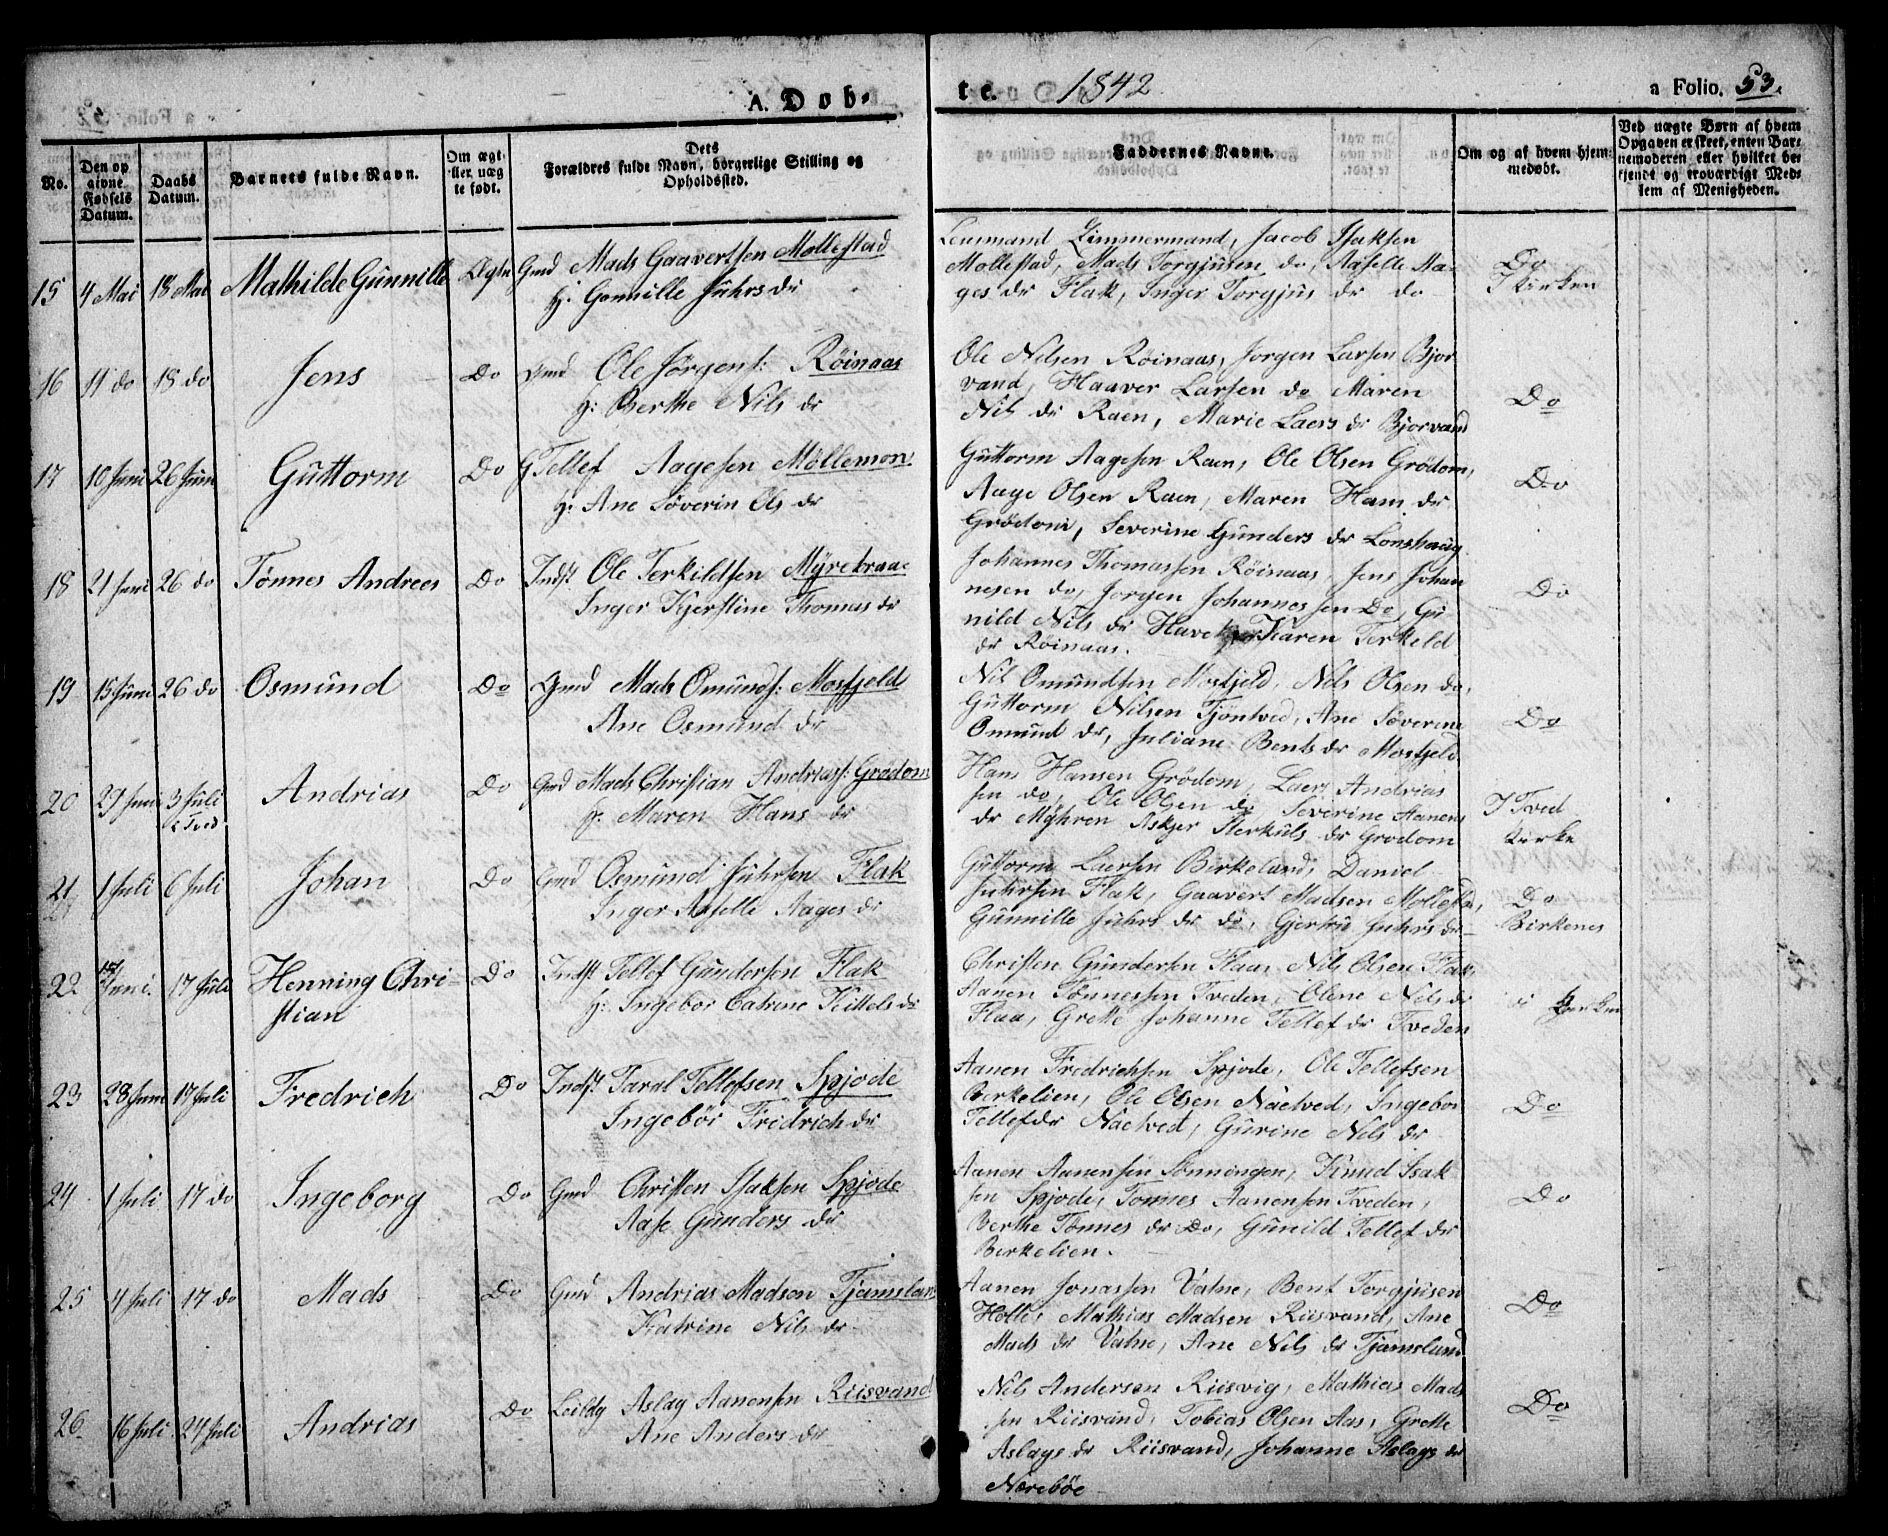 A. Døb-
te. 1842. a Folio. 53.
No.
Den op
givne
Fødsels
Datum.
Daabs
Datum.
Barnets fulde Navn.
Om ægt
eller uæg
te født.
Dets
Forældres fulde Navn, borgerlige Stilling og
Opholdssted.
Faddernes Navne.
Om og af hvem hjem-
medøbt.
Ved uægte Børn af hvem
Opgaven er skeet, enten Bar-
nemoderen eller hvilket be-
kjendt og troværdigt Med-
lem af Menigheden.
15 4 Mai 18 Mai Mathilde Gunnille Ægte Gmd Mads Gaavertsen Mollestad
H: Gonnille Juhrs dr
Lensmand Zimmermand, Jacob Isaksen
Mollestad, Mads Torgjusen do, Aaselle Aa-
ges dr Flak, Inger Torgjus dr do
Do
I Kirken
16 11 do 18 do Jens Do Gmd Ole Jørgens: Røinaas
H: Berthe Nils dr
Ole Nilsen Røinaas, Jorgen Larsen Bjor
vand, Haaver Larsen do Maren
Nils dr Raen, Marie Laers dr Bjorvand
Do
17 10 Juni 26 Juni Guttorm Do G Tellef Aagesen Möllemon
H: Ane Söverin Ols dr
Guttorm Aagesen Raen, Ole Olsen Grödom,
Aage Olsen Raen, Maren Hans dr
Grödom, Severine Gunders dr Lonshaug
Do
18 21 Juni 26 do Tønnes Andrees Do Indst Ole Terkildsen Myrebraae
Inger Kjerstine Thomas dr
Johannes Thomassen Röinaas, Jens Johan
nesen do, Jorgen Johannessen Do, Gu
nild Nils dr Karen Terkeld
dr Røinaas.
Do
19 15 Juni 26 do Osmund Do Gmd Mads Omunds: Mosfjeld
Ane Osmund dr
Nil Omundsen Mosfjeld, Nils Olsen do,
Guttorm Nilsen Tjöntved, Ane Söverine
Omund dr, Juliane Bents dr Mosfjeld
Do
20 29 Juni 3 Juli
i Tved
Andrias Do Gmd Mads Christian Andriass: Grödom
H: Maren Hans dr
Hans Hansen Grödom, Laers Andrias
sen do, Ole Olsen do Severine Aanens
dr Myhren dr Grodom
I Tved
Kirke
21 1 Juli 6 Juli Johan Do Gmd Osmund Juhrsen Flak
Inger Aaselle Aages dr
Guttorm Laersen Birkeland, Daniel
Juhrsen Flak, Gaavert Madsen Mollestad,
Gunnille Juhrs dr do, Gjertru Juhrs dr
Do
Birkenes
22 Juni. 17 Juli Henning Chri-
stian
Do Indst Tellef Gundersen Flak
H: Ingebor Catrine Kittels dr
Christen Gundersen Flaa, Nils Olsen Flak,
Aanen Tønnessen Tveden, Olene Nils dr
Flaa, Grethe Johanne Tellef dr Tveden
i Kirken
23 28 Juni 17 Juli Fredrich Do Indst Taral Tellefsen Spjode
Ingebör Fridrich dr
Aanen Fredrichsen Spjode, Ole Tellefsen
Berkelien, Ole Olsen Naetved, Ingebor
Tellef dr Naetved, Gurine Nils dr
Do
24 1 Juli 17 do Ingeborg Do Gmd Christen Isaksen Spjode
Aase Gunders dr
Aanen Aanensen Sønningen, Knud Isak
sen Spjode, Tonnes Aanensen Tveden,
Berthe Tønnes dr Do, Gunild Tellef dr
Berkelien.
Do
25 4 Juli 17 do Mads Do Gmd Andrias Madsen Tjomslund
Katrine Nils dr
Aanen Jonassen Vatne, Bent Torgjusen
Holle, Mathias Madsen Riisvand, Ane
Mads dr Vatne, Ane Nils dr Tjomslund
Do
26 16 Juli 24 Juli Andrias Do Leildg Aslag Aanensen Riisvand
Ane Anders dr
Nils Andersen Riisvig, Mathias Mad
sen Riisvand, Tobias Olsen Aas, Grethe
Aslags dr Riisvand, Johanne Aslags dr
Nærebøe
Do